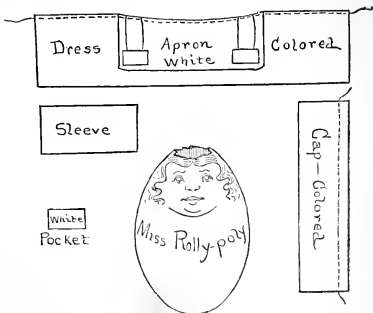 Dress
Apron
White
Colored
Sleeve
Cap—Colored
White
Pocket
Miss Rolly-poly